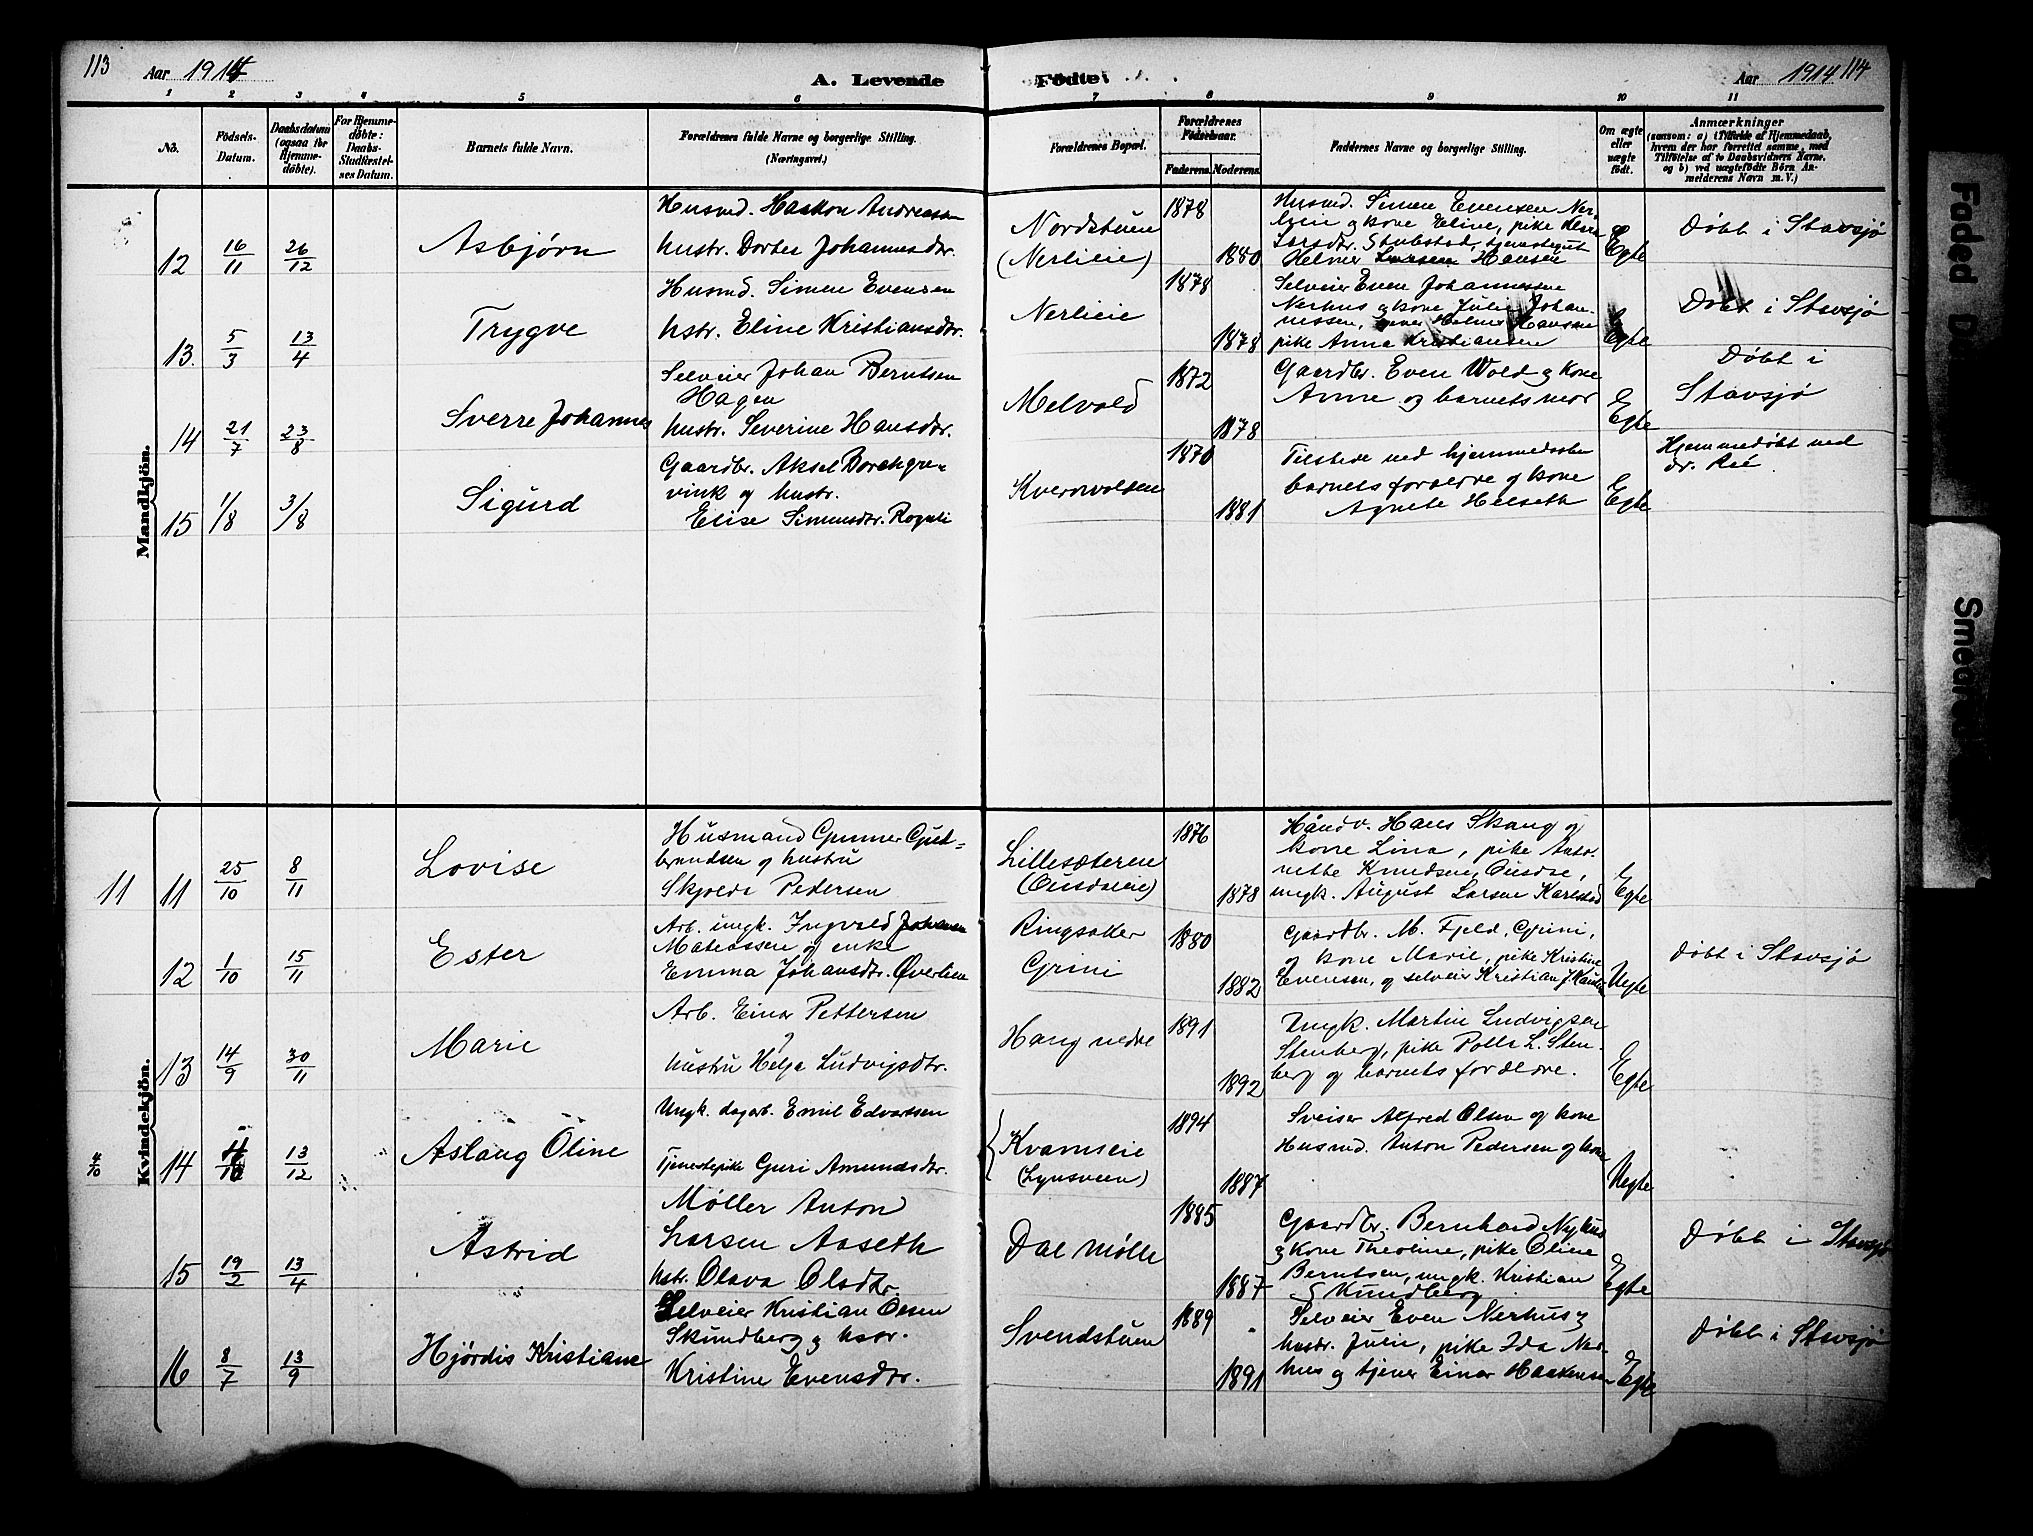 113 Aar 1914 A. Levende Födte. Aar 1914 114
1 2 3 4 5 6 7 8 9 10 11
No. Födsels-Datum. Daabsdatum (ogsaa for Hjemmedöbte). For Hjemmedöbte: Daabs-Stadfæstelses Datum. Barnets fulde Navn. Forældrenes fulde Navne og borgerlige Stilling. (Næringsvei.) Forældrenes Bopæl. Forældrenes Födselsaar. Faderens. Moderens. Faddernes Navne og borgerlige Stilling. Om ægte eller uægte födt. Anmærkninger
(saasom: a) i Tilfælde af Hjemmedaab, hvem der har forrettet samme, med Tilföielse af to Daabsvidners Navne, og b) ved uægtefödte Börn Anmelderens Navn m.V.)
Mandkjön.
12 16/11 26/12 Asbjørn
Husmd. Haakon Andreassen
hustr. Dortea Johannesdtr.
Nordstuen
(Nerlieie)
1878
1880
Husmd. Simen Evensen Ner-
lieie og kone Eline, pike Klara
Larsdtr. Stubstad, tjenestegut
Helmer Larsen Hansen
Egte
Døbt i Stavsjø
13. 5/3 13/4 Trygve
Husmd. Simen Evensen
hstr. Eline Kristiansdtr.
Nerlieie
1878
1878
Selveier Even Johannessen
Nerhus og kone Julie Johan-
nessen, Helmer Hansen
pike Anna Kristiansen
Egte
Døbt i Stavsjø
14 21/7 23/8 Sverre Johannes
Selveier Johan Berntsen
Hagen
hustr. Severine Hansdtr.
Melvold
1872
1878
Gaardbr. Even Wold og kone
Anne og barnets mor
Egte
Døbt i
Stavsjø
15 1/8 3/8 Sigurd
Gaardbr. Aksel Borchgre-
vink og hustr.
Elise Simensdtr. Rogeli
Kvernvolden
1870
1881
Tilstede ved hjemmedaaben
barnets forældre og kone
Agnete Helseth
Egte
Hjemmedøbt ved
dr. Rie
Kvindekjön.
11 11 25/10 8/11 Lovise
Husmand Gunner Gud=
brandsen og hustru
Skjoldis Pedersen
Lillesæteren
1876
1878
Håndv. Hans Skaug og
kone Lina, pike Anto-
nette Knudsen,
ungk. August Larsen Karlstad
Egte
12 1/10 15/11 Ester
Arb. ungk. Ingvald Johansen
Mateassen og enke
Emma Johansdtr. Øverlien
Ringsaker
Grini
1880
1882
Gaardbr. M. Fjeld, Grini,
og kone Marie, pike Kristine
Evensen, og selveier Kristian
Uegte
Døbt i Stavsjø
13 14/9 30/11 Marie
Arb. Einar Pettersen
og
hustru Helga Ludvigsdtr.
Haug nedre
1891
1892
Ungk. Martin Ludvigsen
Stenberg, pike Polla L. Sten-
berg og barnets forældre.
Egte
4/10 14 13/12 Aslaug Oline
Ungk. dagarb. Emil Edvartsen
Tjenestepike Guri Amundsdtr.
Kvamseie
(Lynsveen)
1894
1887
Sveiser Alfred Olsen og kone
Husmd. Anton Pedersen og kone
Uegte
15 19/2 13/4 Astrid
Møller Anton
Larsen Aaseth
hstr. Olava Olsdtr.
Dal mølle
1885
1887
Gaardbr. Bernhard Nyhus
og kone Theoline, pike Oline
Berntsen, ungk. Kristian
Skundberg
Egte
Døbt i Stavsjø
16 8/7 13/9 Hjørdis Kristiane
Selveier Kristian Olsen
Skundberg og hstr.
Kristine Evensdtr.
Svendstuen
1889
1891
Selveier Even Nerhus og
hustr. Julie, pike Ida Ner-
hus og tjener Einar Haakensen
Egte
Døbt i Stavsjø
Faded